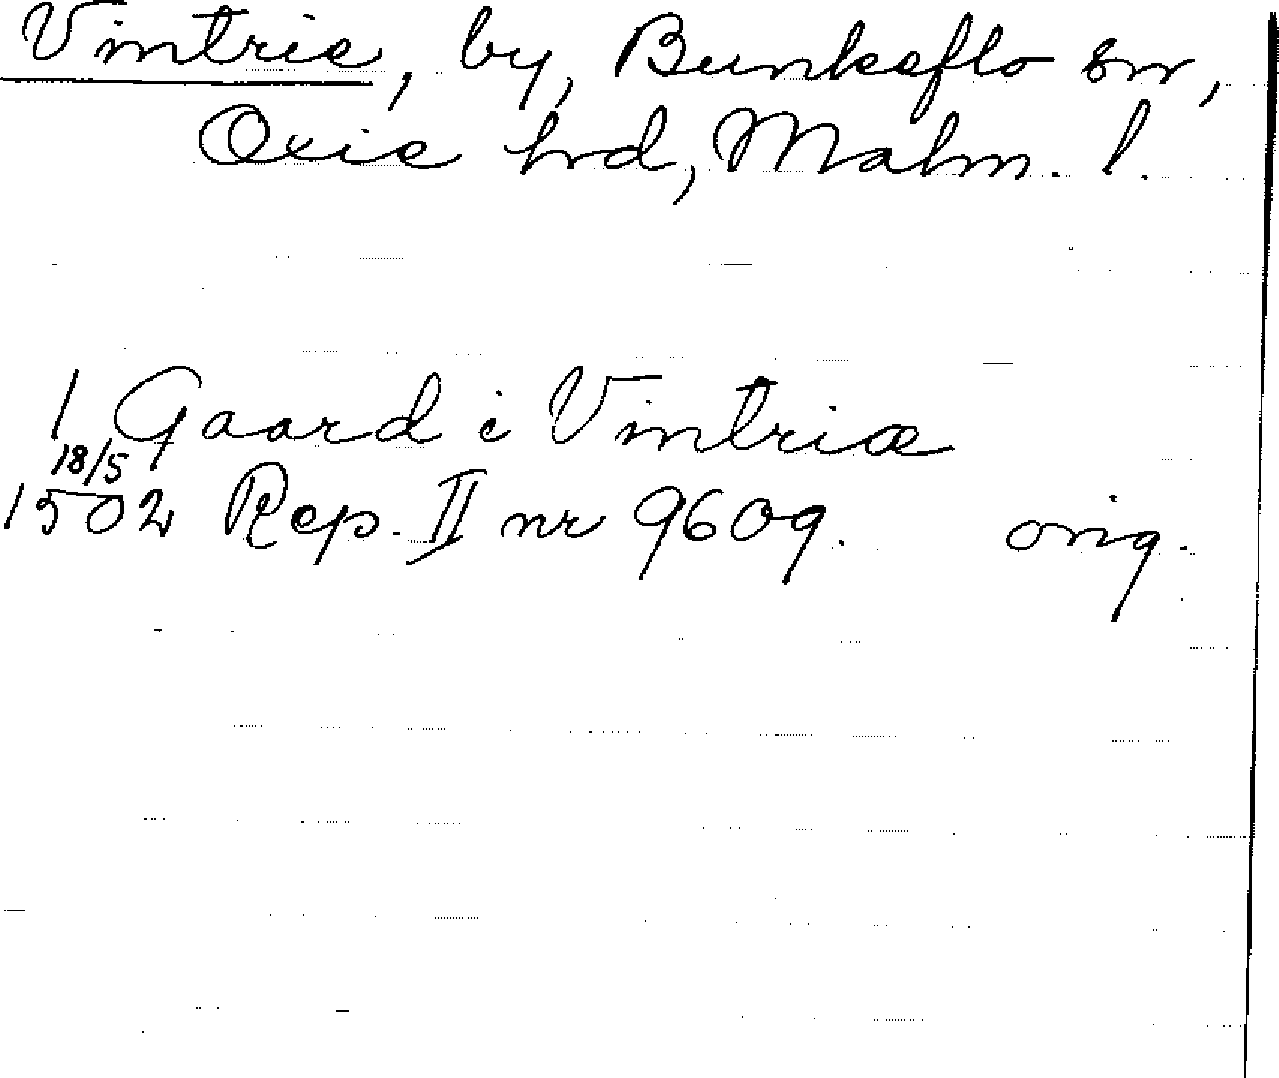 Vintrie, by, Bunkeflo sn,
Oxie hrd, Malm. l.
1 Gaard i Vintriæ
18/5
1502 Rep. II nr 9609. orig.